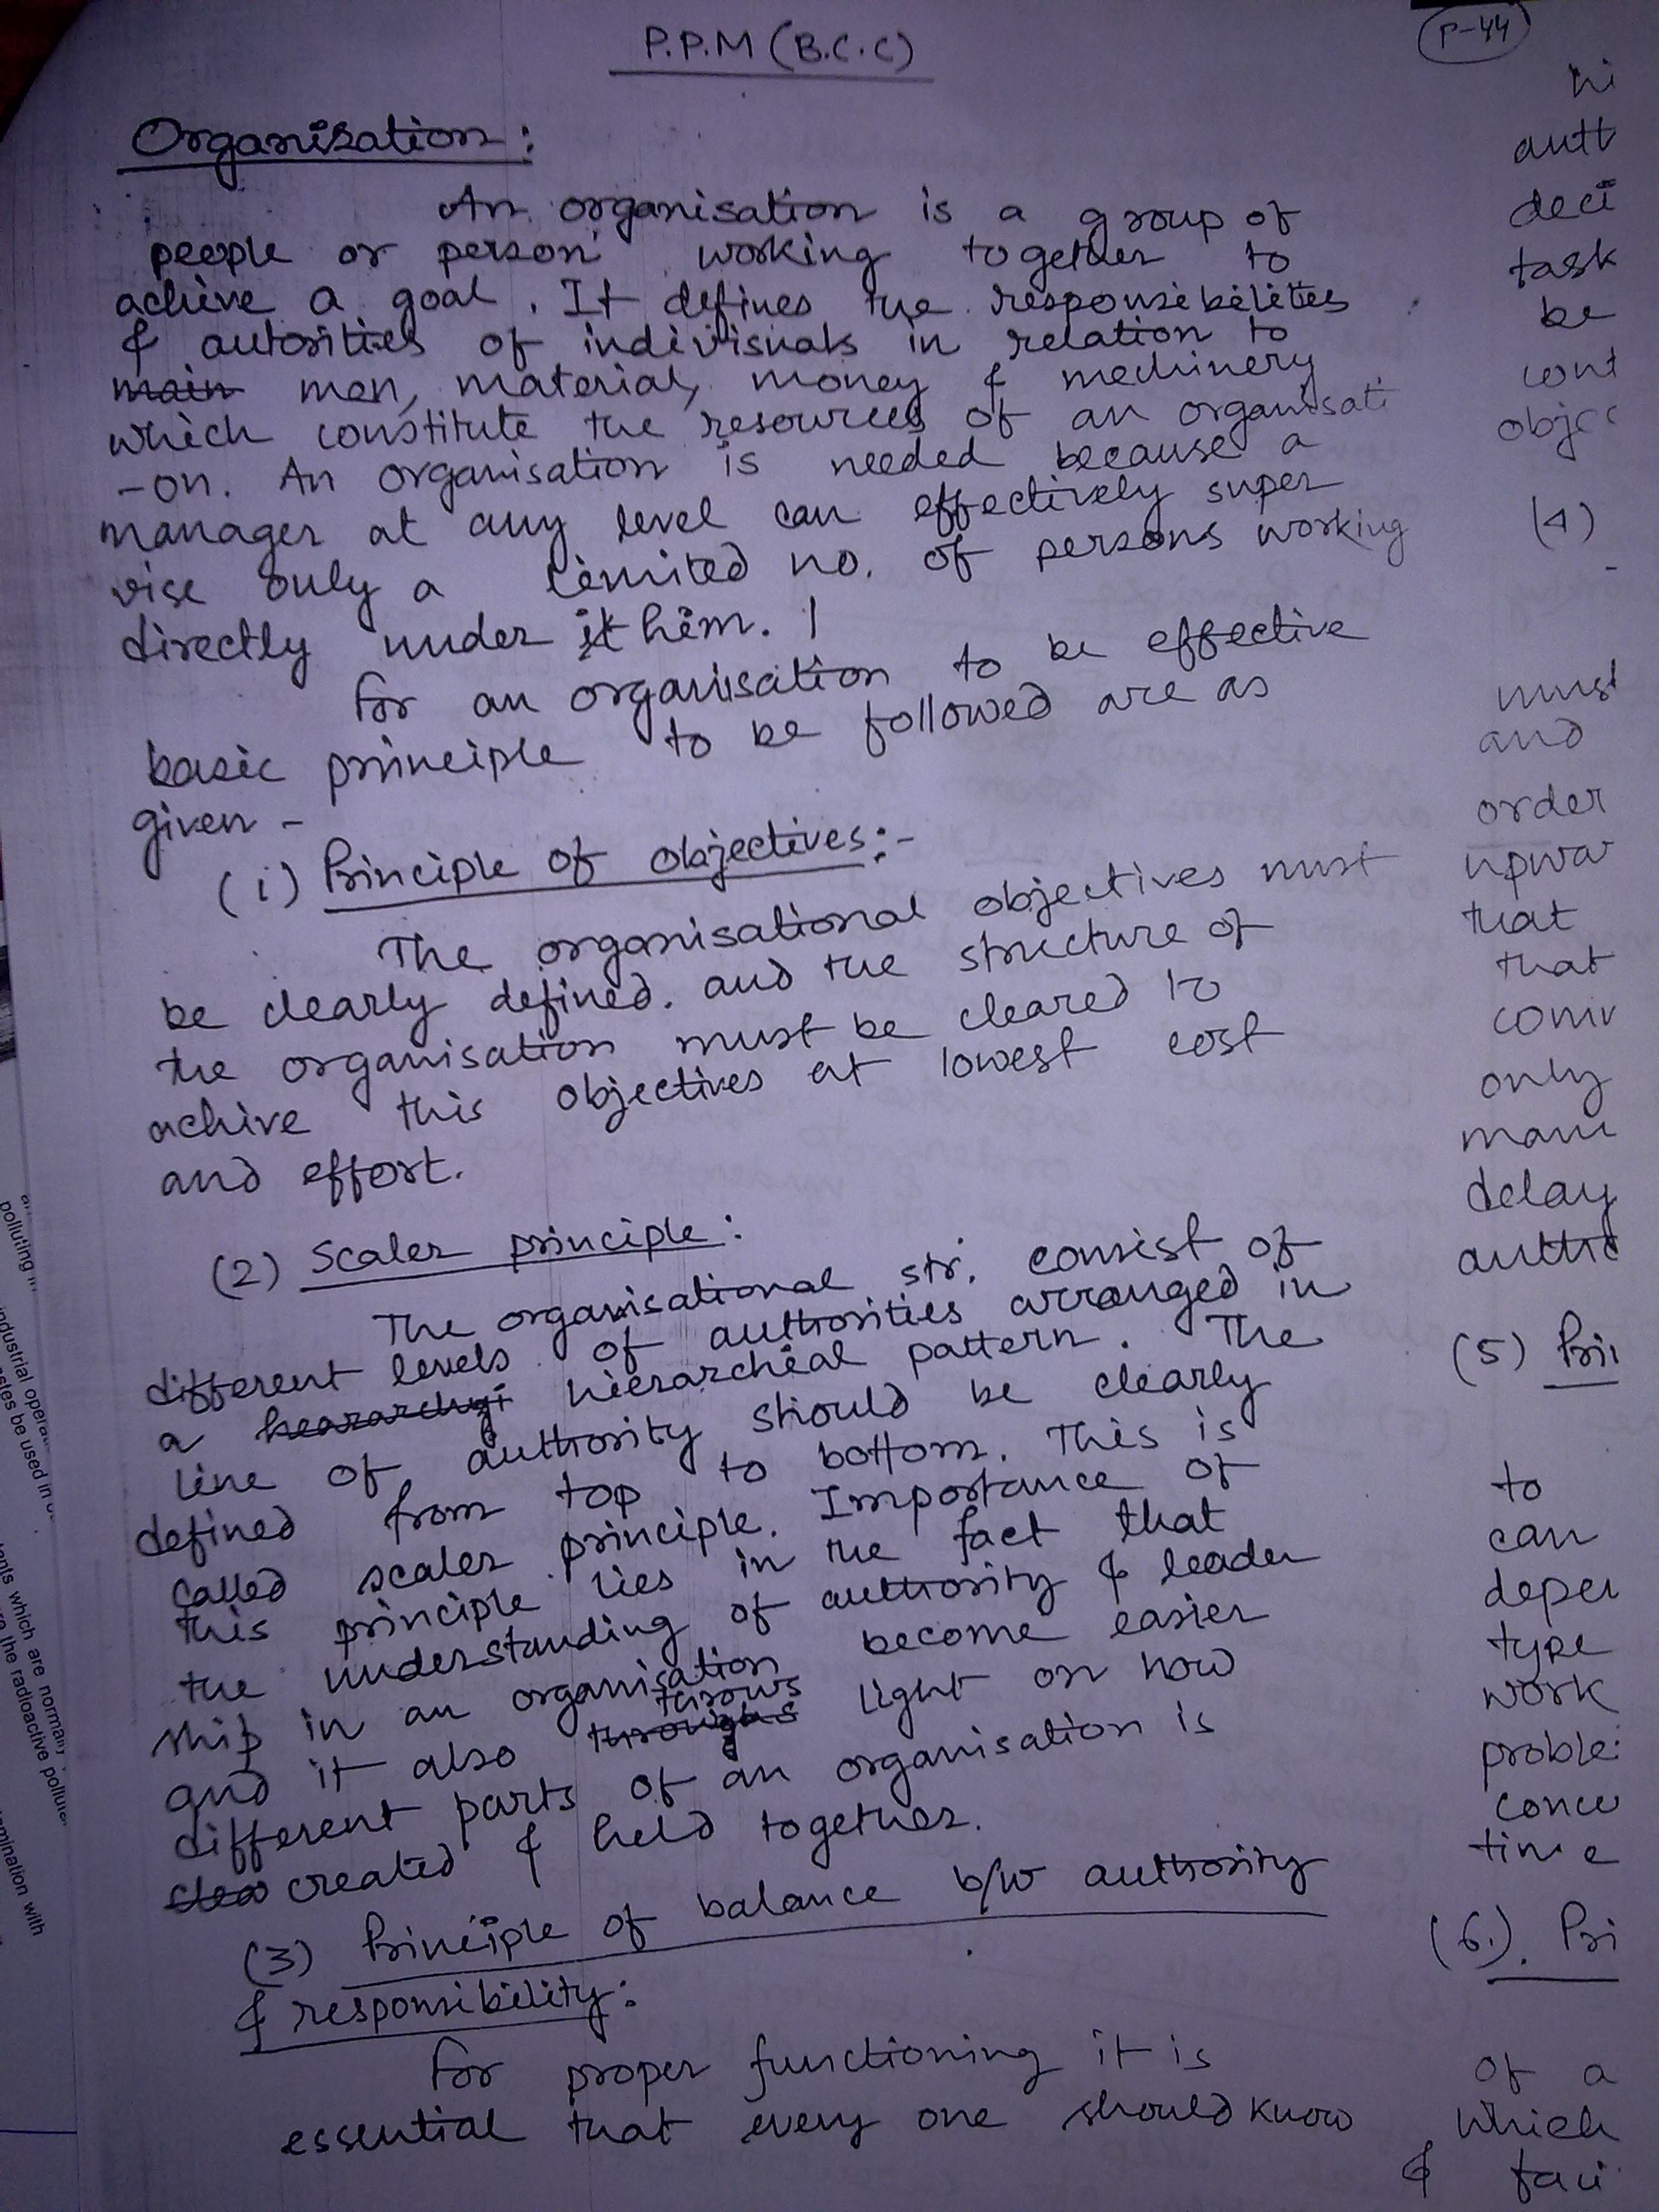 P.P.M (B.C.C)
P-44
Organisation:
An organisation is a group of
people or person working together to
achive a goal. It defines the responsibilities
& autorities of indivisuals in relation to
main men, material, money & mechinery
which constitute the resources of an organisati
-on. An organisation is needed because a
manager at any level can effectively super
vise only a limited no. of persons working
directly under it him.
for an organisation to be effective
basic principle to be followed are as
given -
(i) Principle of objectives:-
The organisational objectives must
be clearly defined. and the structure of
the organisation must be cleared to
achive this objectives at lowest cost
and effort.
(2) Scaler principle:
The organisational str. consist of
different levels of authorities arranged in
a hierarcheal pattern. The
line of authority should be clearly
defined from top to bottom. This is
called scaler principle. Importance of
this principle lies in the fact that
the understanding of authority & leader
ship in an organisation become easier
and it also throughs throws light on how
different parts of an organisation is
created & held together.
(3) Principle of balance b/w authority
& responsibility:
for proper functioning it is
essential that every one should know
hi
auth
deci
task
be
cont
objec
(4)
must
and
order
upwar
that
that
only
delay
(5) Pri
to
can
type
work
proble
time
(6.). Pri
of a
which
& faci
polluting
industrial opera
stes be used in
nts which are normally
the radioactive pollut
mination with